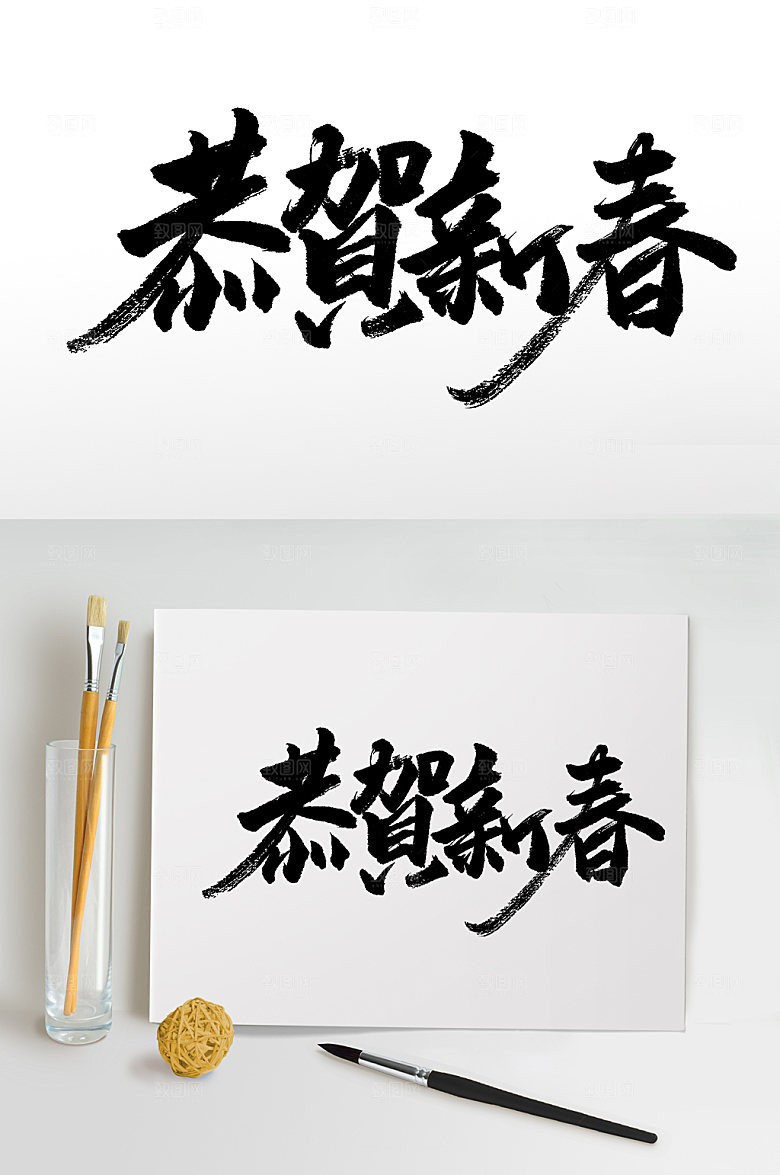 恭賀新春
恭賀新春